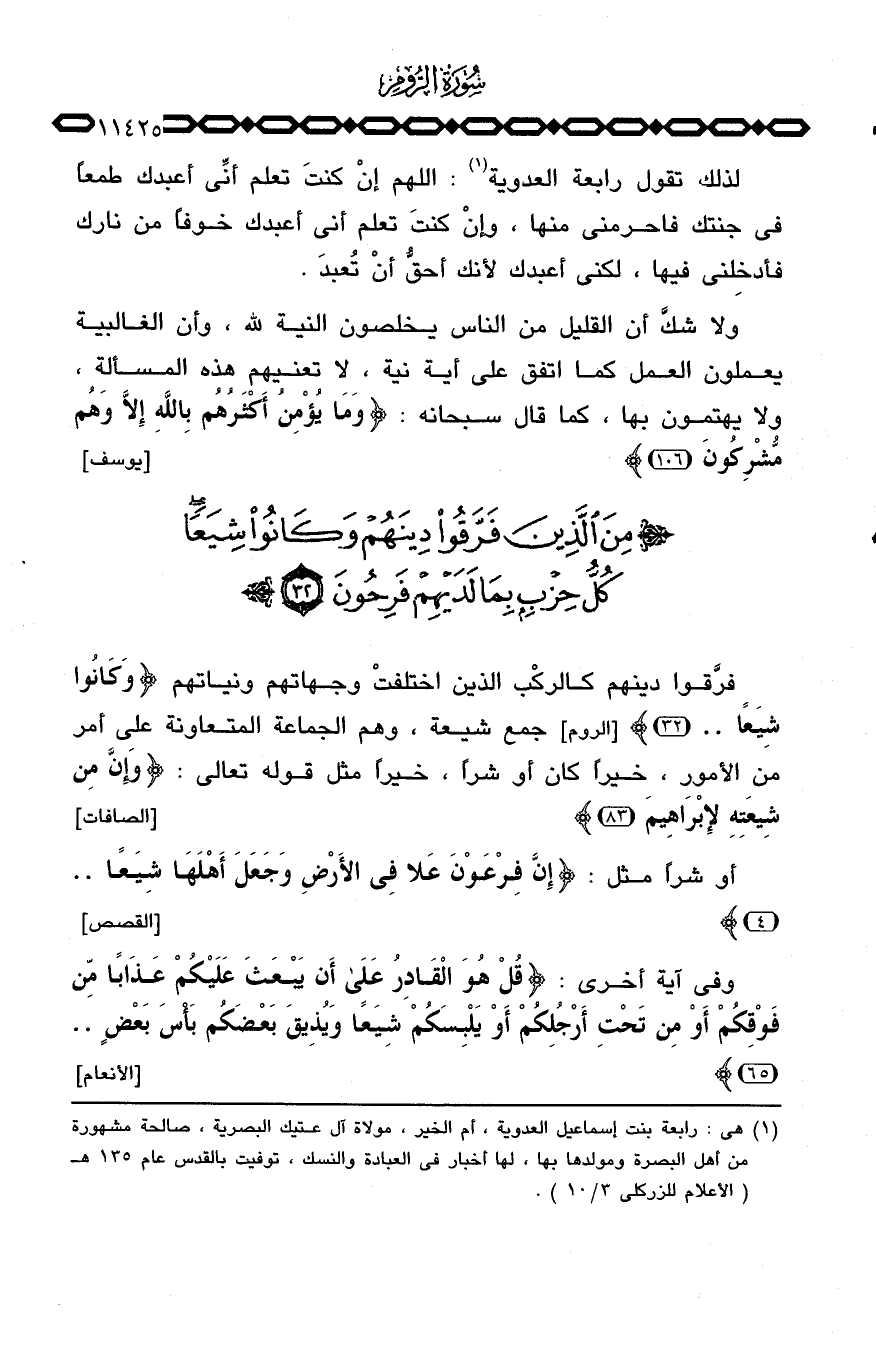 سُورَةُ الرُّومِ
١١٤٢٥
لذلك تقول رابعة العدوية(١) : اللهم إنْ كنتَ تعلم أنِّى أعبدك طمعاً
فى جنتك فاحرمنى منها ، وإنْ كنتَ تعلم أنى أعبدك خوفاً من نارك
فأدخلنى فيها ، لكنى أعبدك لأنك أحقُّ أنْ تُعبدَ .
ولا شكَّ أن القليل من الناس يخلصون النية لله ، وأن الغالبية
يعملون العمل كما اتفق على أية نية ، لا تعنيهم هذه المسألة ،
ولا يهتمون بها ، كما قال سبحانه : ﴿ وَمَا يُؤْمِنُ أَكْثَرُهُم بِاللَّهِ إِلاَّ وَهُم
مُّشْرِكُونَ (١٠٦) ﴾ [يوسف]
﴿ مِنَ ٱلَّذِينَ فَرَّقُواْ دِينَهُمْ وَكَانُواْ شِيَعًاۖ
كُلُّ حِزْبٍۭ بِمَا لَدَيْهِمْ فَرِحُونَ (٣٢) ﴾
فرَّقوا دينهم كالركْب الذين اختلفتْ وجهاتهم ونياتهم ﴿ وَكَانُوا
شِيَعًا .. (٣٢) ﴾ [الروم] جمع شيعة ، وهم الجماعة المتعاونة على أمر
من الأمور ، خيراً كان أو شراً ، خيراً مثل قوله تعالى : ﴿ وَإِنَّ مِن
شِيعَتِهِ لإِبْرَاهِيمَ (٨٣) ﴾ [الصافات]
أو شراً مثل : ﴿ إِنَّ فِرْعَوْنَ عَلا فِى الأَرْضِ وَجَعَلَ أَهْلَهَا شِيَعًا ..
(٤) ﴾ [القصص]
وفى آية أخرى : ﴿ قُلْ هُوَ الْقَادِرُ عَلَىٰ أَن يَبْعَثَ عَلَيْكُمْ عَذَابًا مِّن
فَوْقِكُمْ أَوْ مِن تَحْتِ أَرْجُلِكُمْ أَوْ يَلْبِسَكُمْ شِيَعًا وَيُذِيقَ بَعْضَكُم بَأْسَ بَعْضٍ ..
(٦٥) ﴾ [الأنعام]
(١) هى : رابعة بنت إسماعيل العدوية ، أم الخير ، مولاة آل عتيك البصرية ، صالحة مشهورة
من أهل البصرة ومولدها بها ، لها أخبار فى العبادة والنسك ، توفيت بالقدس عام ١٣٥ هـ
( الأعلام للزركلى ١٠/٣ ) .